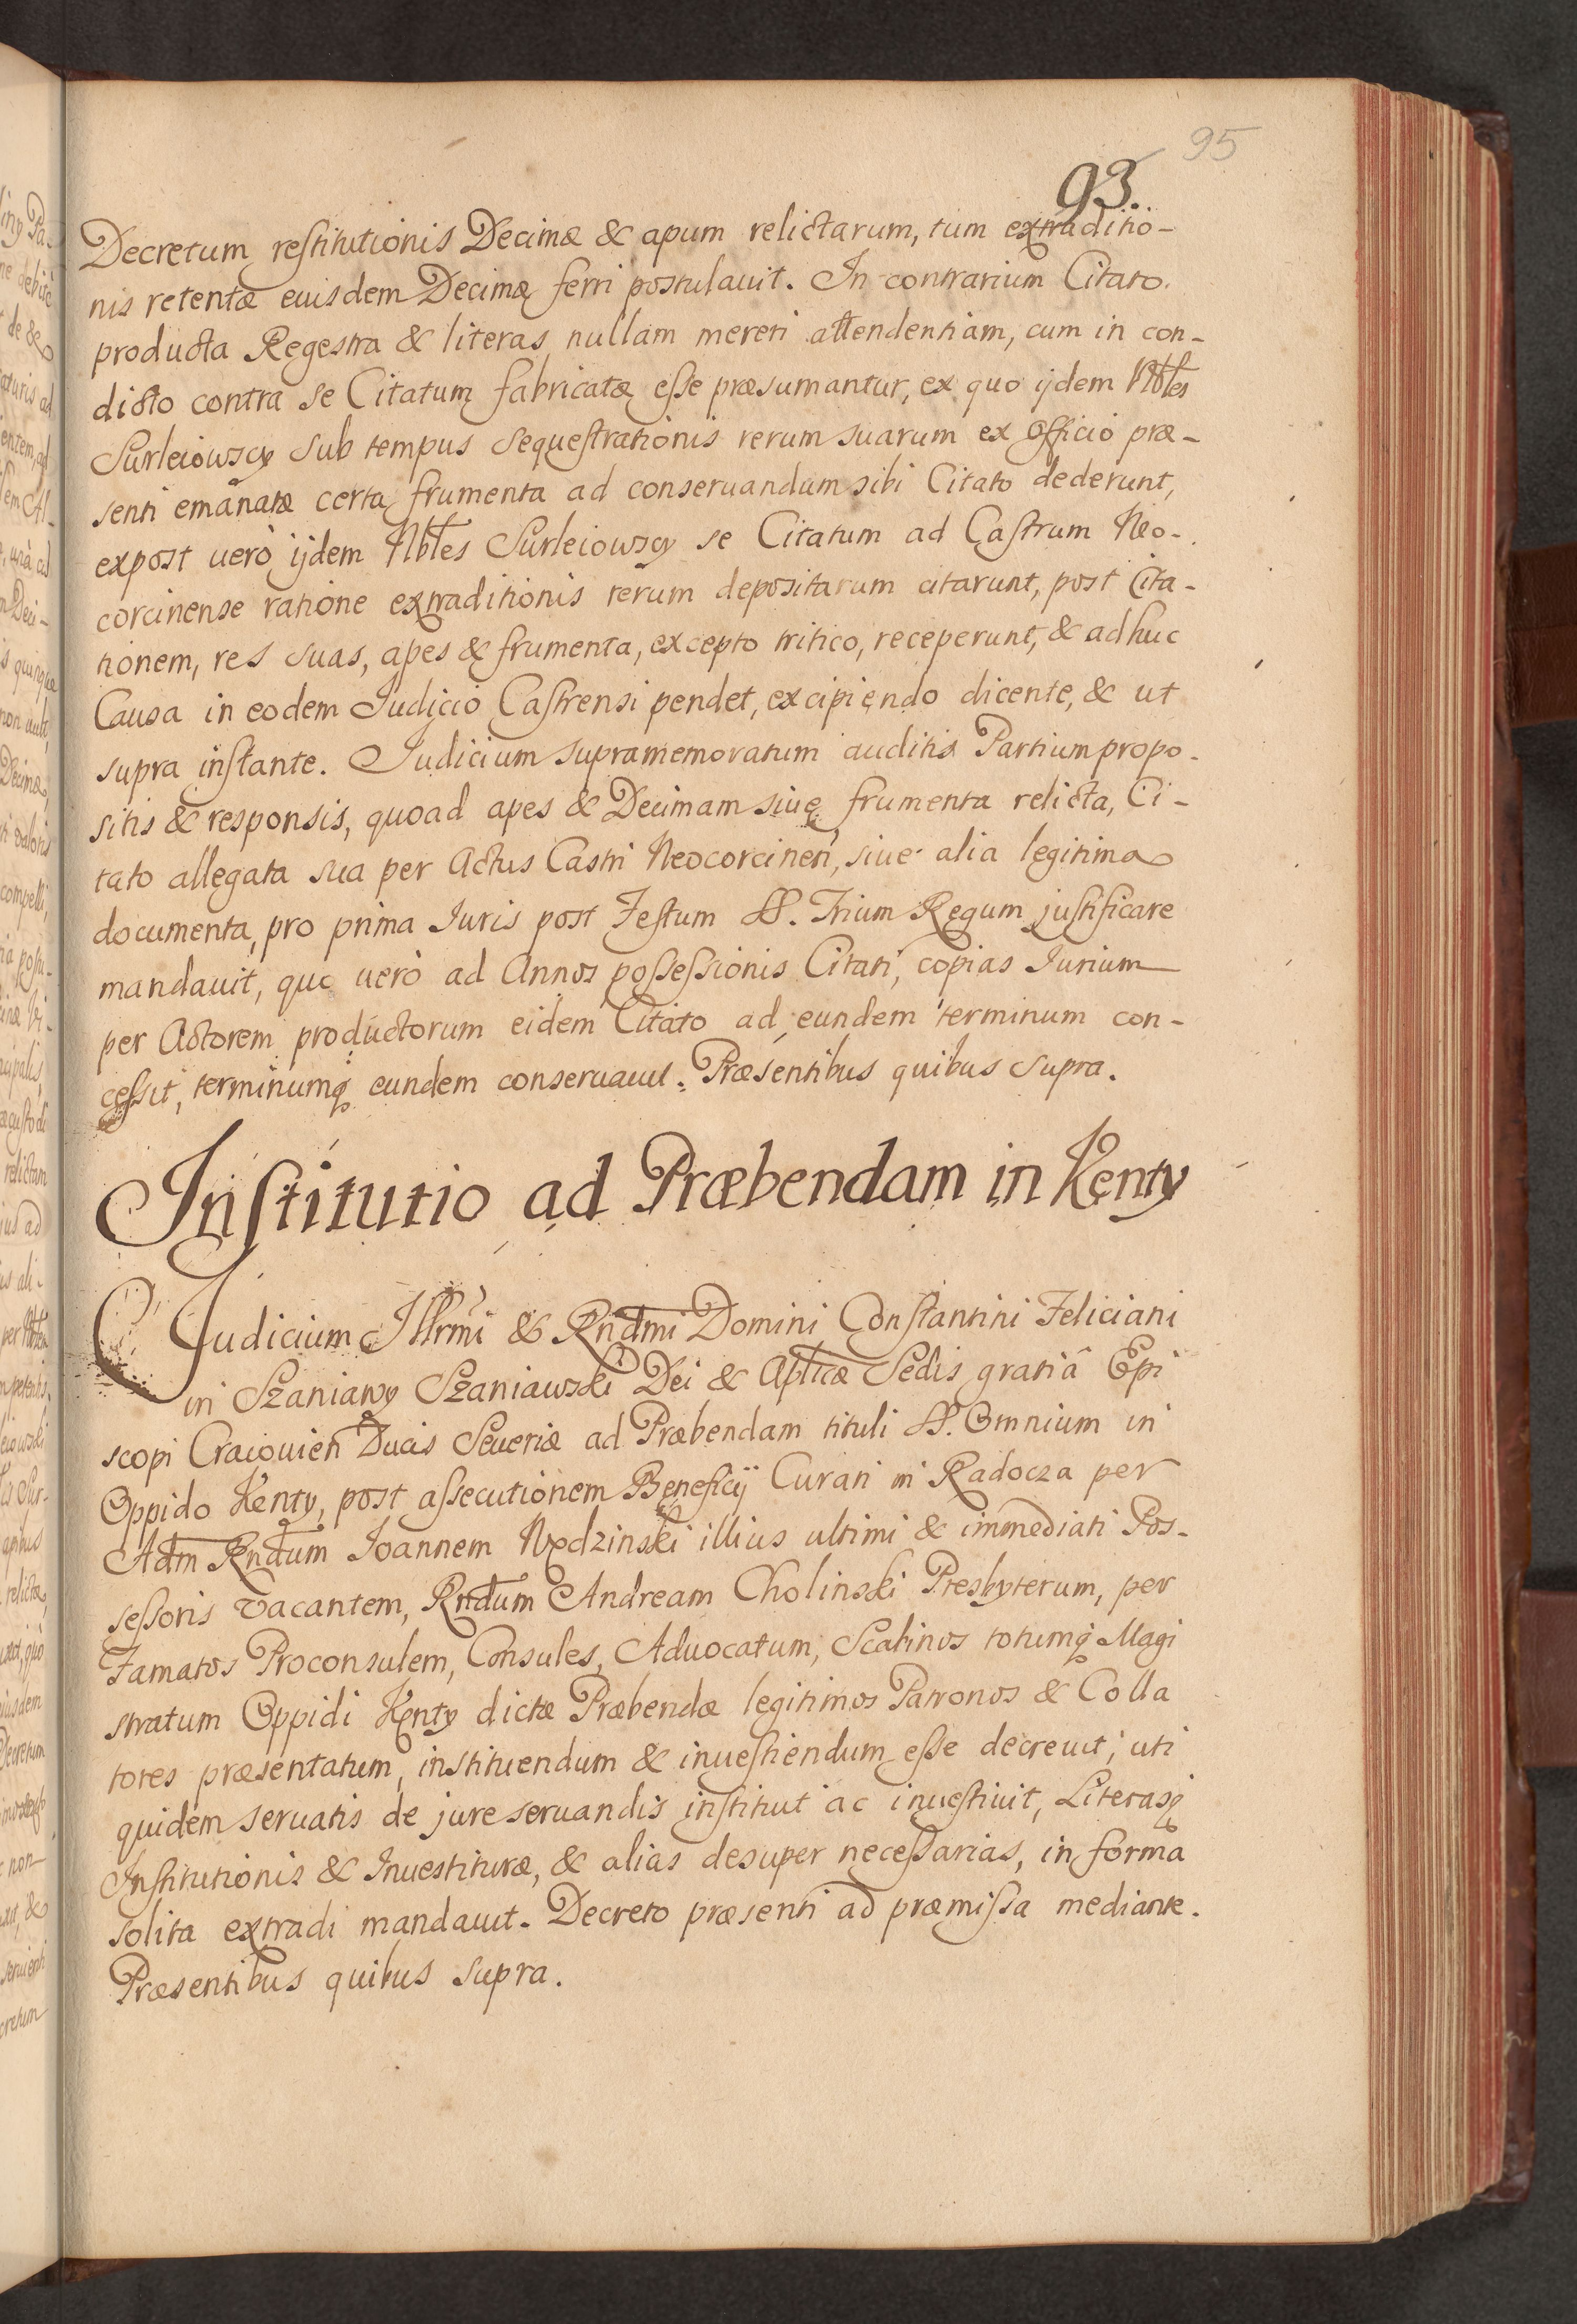 95
93.
Decretum restitutionis Decimæ & apum relictarum, tum extraditio-
nis retentæ euisdem Decimæ ferri postulauit. In contrarium Citato.
producta Regestra & literas nullam mereri attendentiam, cum in con-
dicto contra se Citatum fabricatæ esse præsumantur, ex quo ijdem Nbles
Surleiowscy sub tempus sequestrationis rerum suarum ex officio præ-
senti emanatæ certa frumenta ad conseruandum sibi Citato dederunt,
expost uerò ijdem Nbles Surleiowscy se Citatum ad Castrum Neo-
corcinense ratione extraditionis rerum depositarum citarunt, post Cita-
tionem, res suas, apes & frumenta, excepto tritico, receperunt, & adhuc
Causa in eodem Iudicio Castrensi pendet, excipiendo dicente, & ut
supra instante. Iudicium supramemoratum auditis Partium propo-
sitis & responsis, quoad apes & Decimam siue frumenta relicta, Ci-
tato allegata sua per Actus Castri Neocorcinen, siue alia legitima
documenta, pro prima Iuris post Festum SS. Trium Regum justificare
mandauit, quo uerò ad Annos possessionis Citati, copias Iurium
per Actorem productorum eidem Citato ad eundem terminum con-
cessit, terminumq eundem conseruauit. Præsentibus quibus supra.
Institutio ad Præbendam in Kenty
Iudicium Illrmi & Rndmi Domini Constantini Feliciani
in Szaniawy Szaniawski Dei & Aplicæ Sedis gratiâ Epi
scopi Cracouien Ducis Seueriæ ad Præbendam tituli SS. Omnium in
Oppido Kenty, post assecutionem Beneficij Curati in Radocza per
Adm Rndum Ioannem Nodzinski illius ultimi & immediati Pos-
sessoris vacantem, Rndum Andream Cholinski Presbyterum, per
Famatos Proconsulem, Consules, Aduocatum, Scabinos totumq Magi
stratum Oppidi Kenty dictæ Præbendæ legitimos Patronos & Colla
tores præsentatum, instituendum & inuestiendum esse decreuit, uti
quidem seruatis de jure seruandis instituit ac inuestiuit, Literasq
Institutionis & Inuestituræ, & alias desuper necessarias, in forma
solita extradi mandauit. Decreto præsenti ad præmissa mediante.
Præsentibus quibus supra.